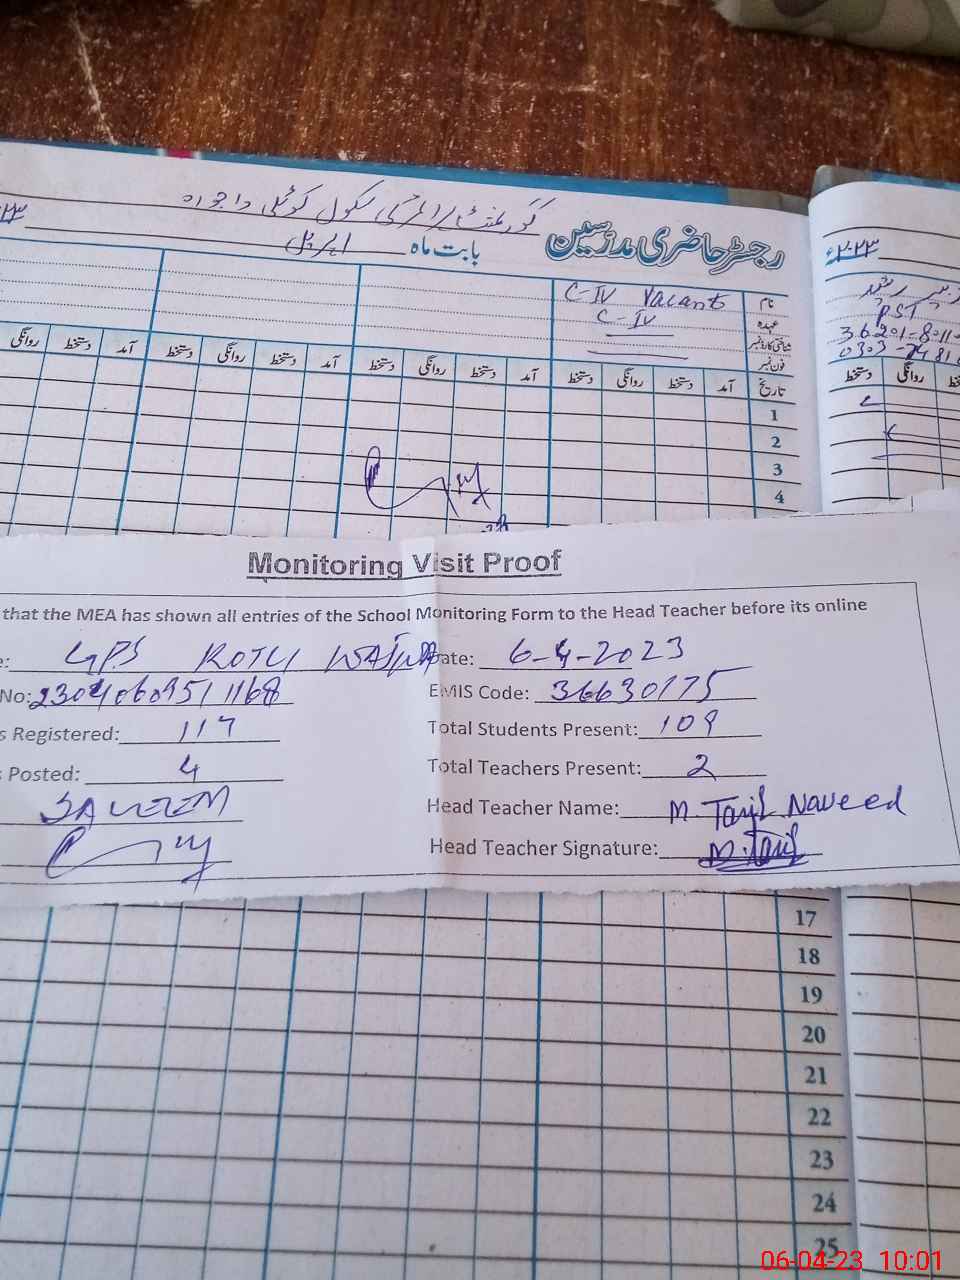 گورنمنٹ پرائمری سکول کوٹلی واجواہ
رجسٹر حاضری مدرسین
بابت ماہ اپریل
۲۳
۲۰۲۳ء
نام C-IV Vacant
عہدہ C-IV
شناختی کارڈ نمبر
فون نمبر
PST
36201-8011-
0303-7481
تاریخ آمد دستخط روانگی دستخط آمد دستخط روانگی دستخط آمد دستخط روانگی دستخط آمد دستخط روانگی
روانگی دستخط
1
2
3
4
Monitoring Visit Proof
that the MEA has shown all entries of the School Monitoring Form to the Head Teacher before its online
e: GPS Date: 6-4-2023
No: EMIS Code: 36630175
s Registered: 117 Total Students Present: 109
s Posted: 4 Total Teachers Present: 2
SALEEM Head Teacher Name: M. Tariq Naveed
Head Teacher Signature: M. Tariq
17
18
19
20
21
22
23
24
25
06-04-23 10:01